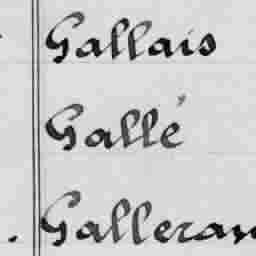 Gallais
Gallé
. Galleran